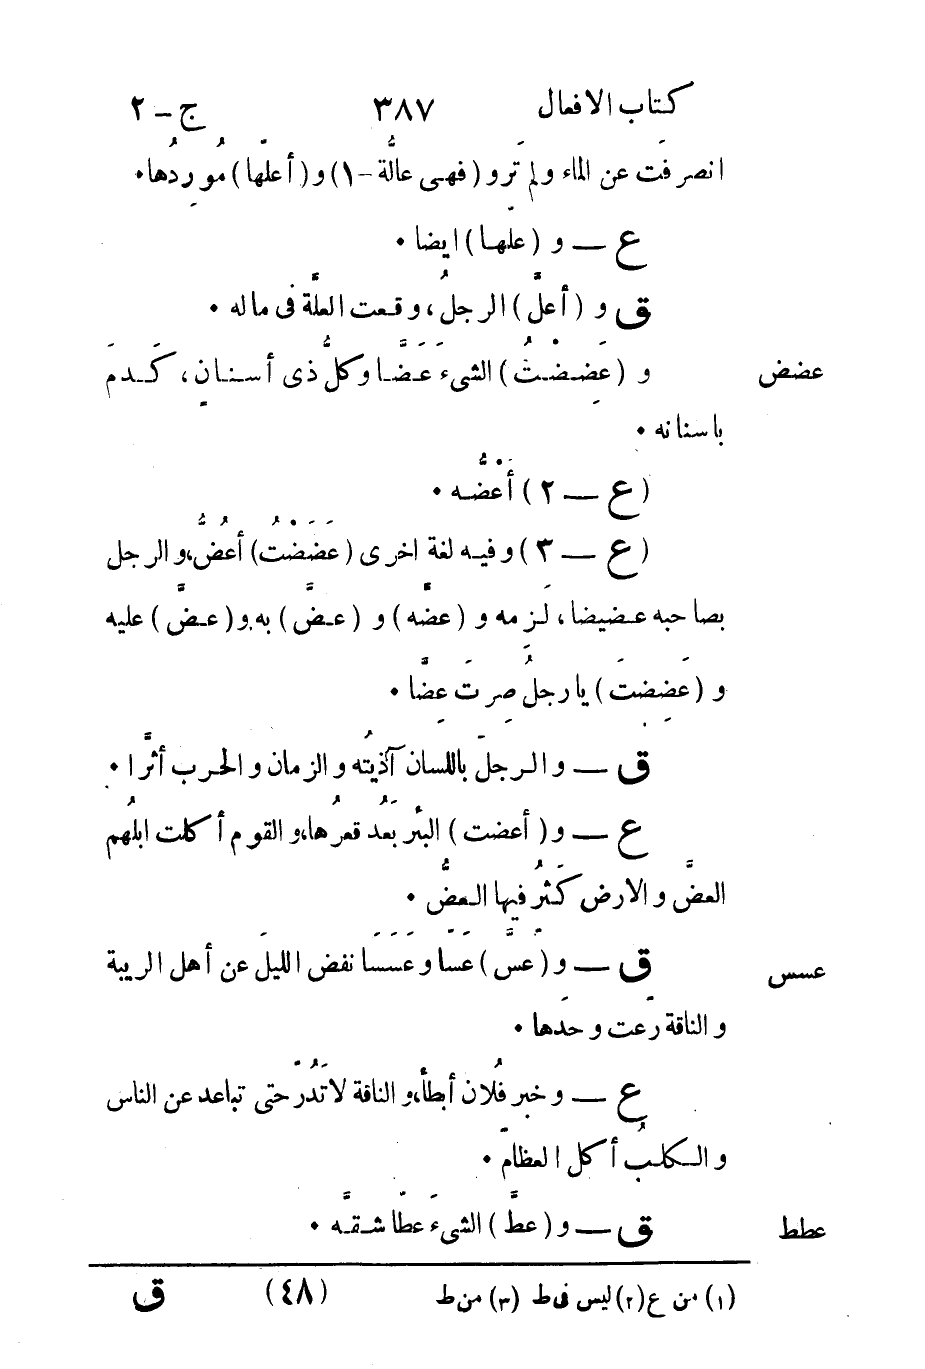 كتاب الافعال ٣٨٧ ج - ٢
انصرفَت عن الماء ولم تَرو (فهى عالّةُ - ١) و (أعلّها) مُورِدُها •
ع — و (علِها) ايضا •
ق و (أعلَّ) الرجلُ، وقعت العلّةَ فى ماله •
عضض و (عَضِضْتُ) الشىءَ عَضَّا وكلُّ ذى أسنانٍ، كَدمَ
باسنانه •
(ع — ٢) أَعْضُّه •
(ع — ٣) وفيه لغة اخرى (عَضَضْتُ) أعُضُّ، والرجل
بصاحبه عضيضا، لَزِمه و (عضَّه) و (عضَّ) به و (عضَّ) عليه
و (عَضِضتَ) يا رجلُ صِرتَ عِضَّا •
ق — والرجلَ باللسان آذيتُه والزمان والحرب أثّرا •
ع — و (أعضت) البئرُ بَعُد قعرُها، والقوم أكلت ابلُهم
العضَّ والارض كَثُر فيها العضُّ •
عسس ق — و (عسَّ) عَسّا وعَسَسَا نفض الليلَ عن أهل الريبة
والناقة رَعت وحدَها •
ع — وخبر فُلان أبطأ، والناقة لا تَدُرّ حتى تباعد عن الناس
والكلبُ أكل العظام •
عطط ق — و (عطَّ) الشىءَ عطّا شقَّه •
(١) من ع (٢) ليس فى ط (٣) من ط (٤٨) ق